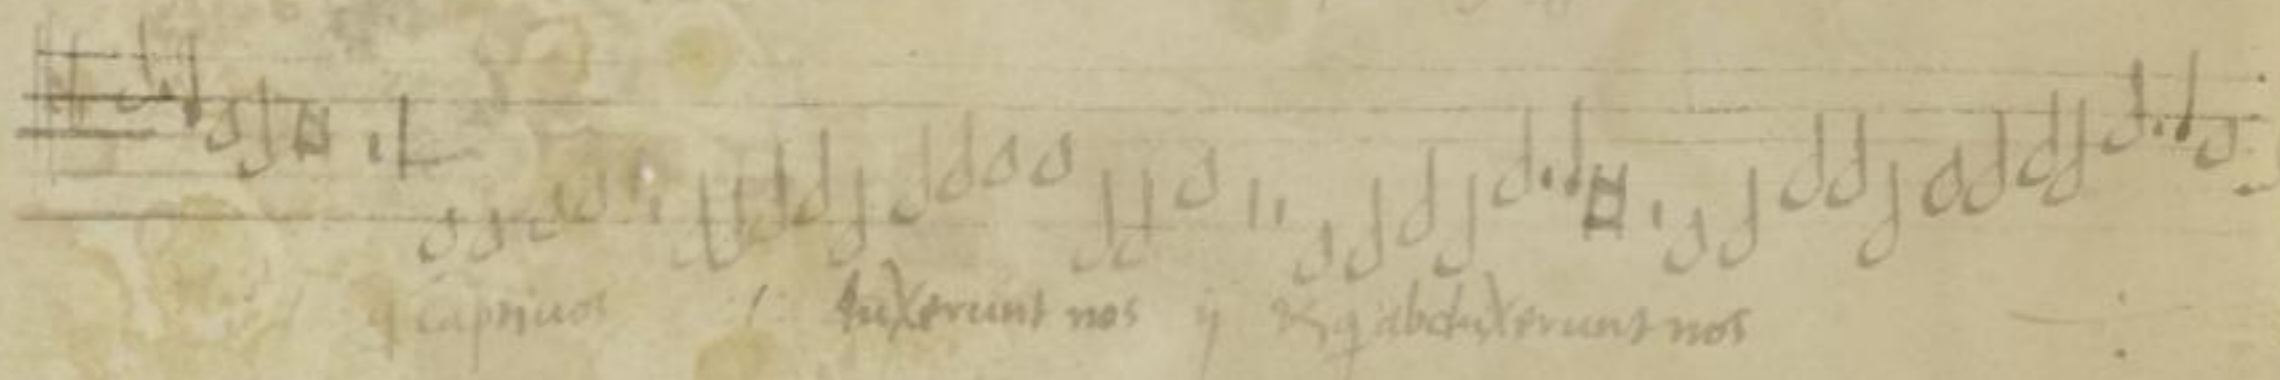 q captiuos duxerunt nos ij Et q abduxerunt nos